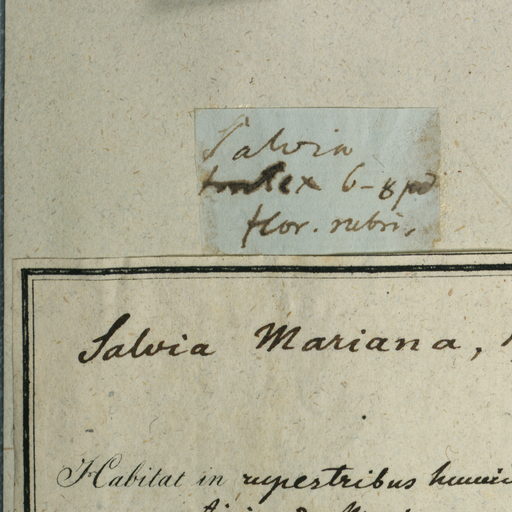 Salvia
frutex 6-8 pd
flor. rubri,
Salvia Mariana,
Habitat in rupestribus